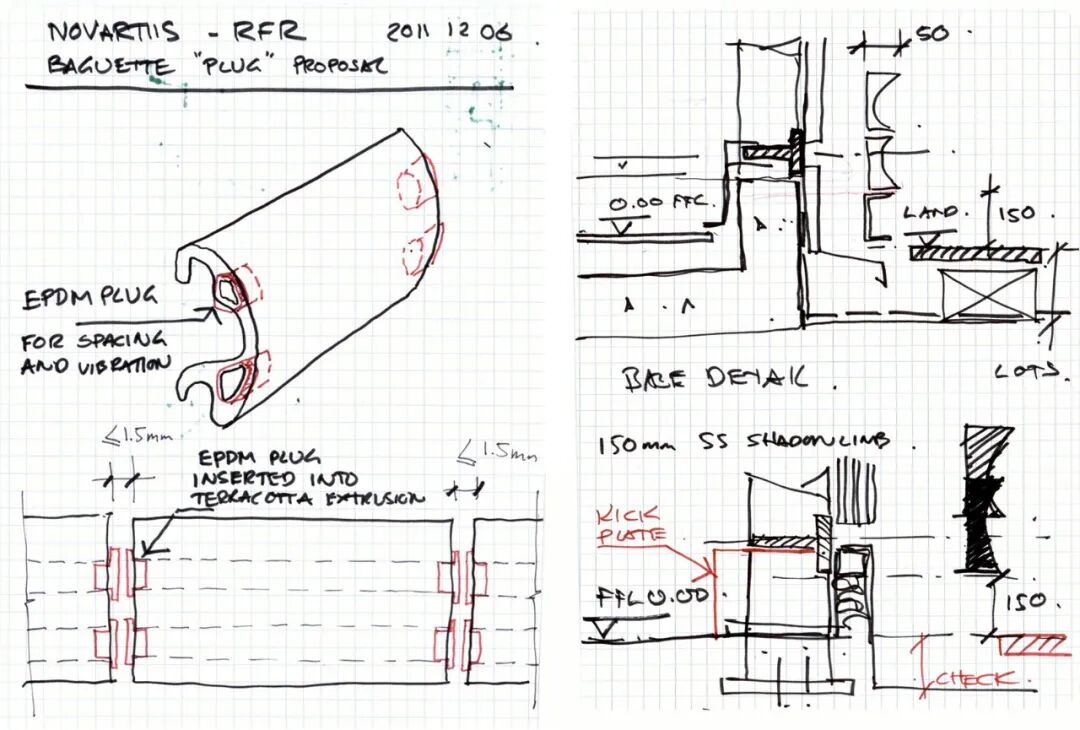 NOVARTIIS - RFR 2011 12 06.
BAGUETTE "PLUG" PROPOSAL
EPDM PLUG
FOR SPACING
AND VIBRATION
≤1.5mm
≤1.5mm
EPDM PLUG
INSERTED INTO
TERRACOTTA EXTRUSION
50.
0.00 FFL.
LAND.
150.
BASE DETAIL.
LOTS.
150mm SS SHADOWLINE.
KICK
PLATE
FFL 0.00
150.
CHECK.